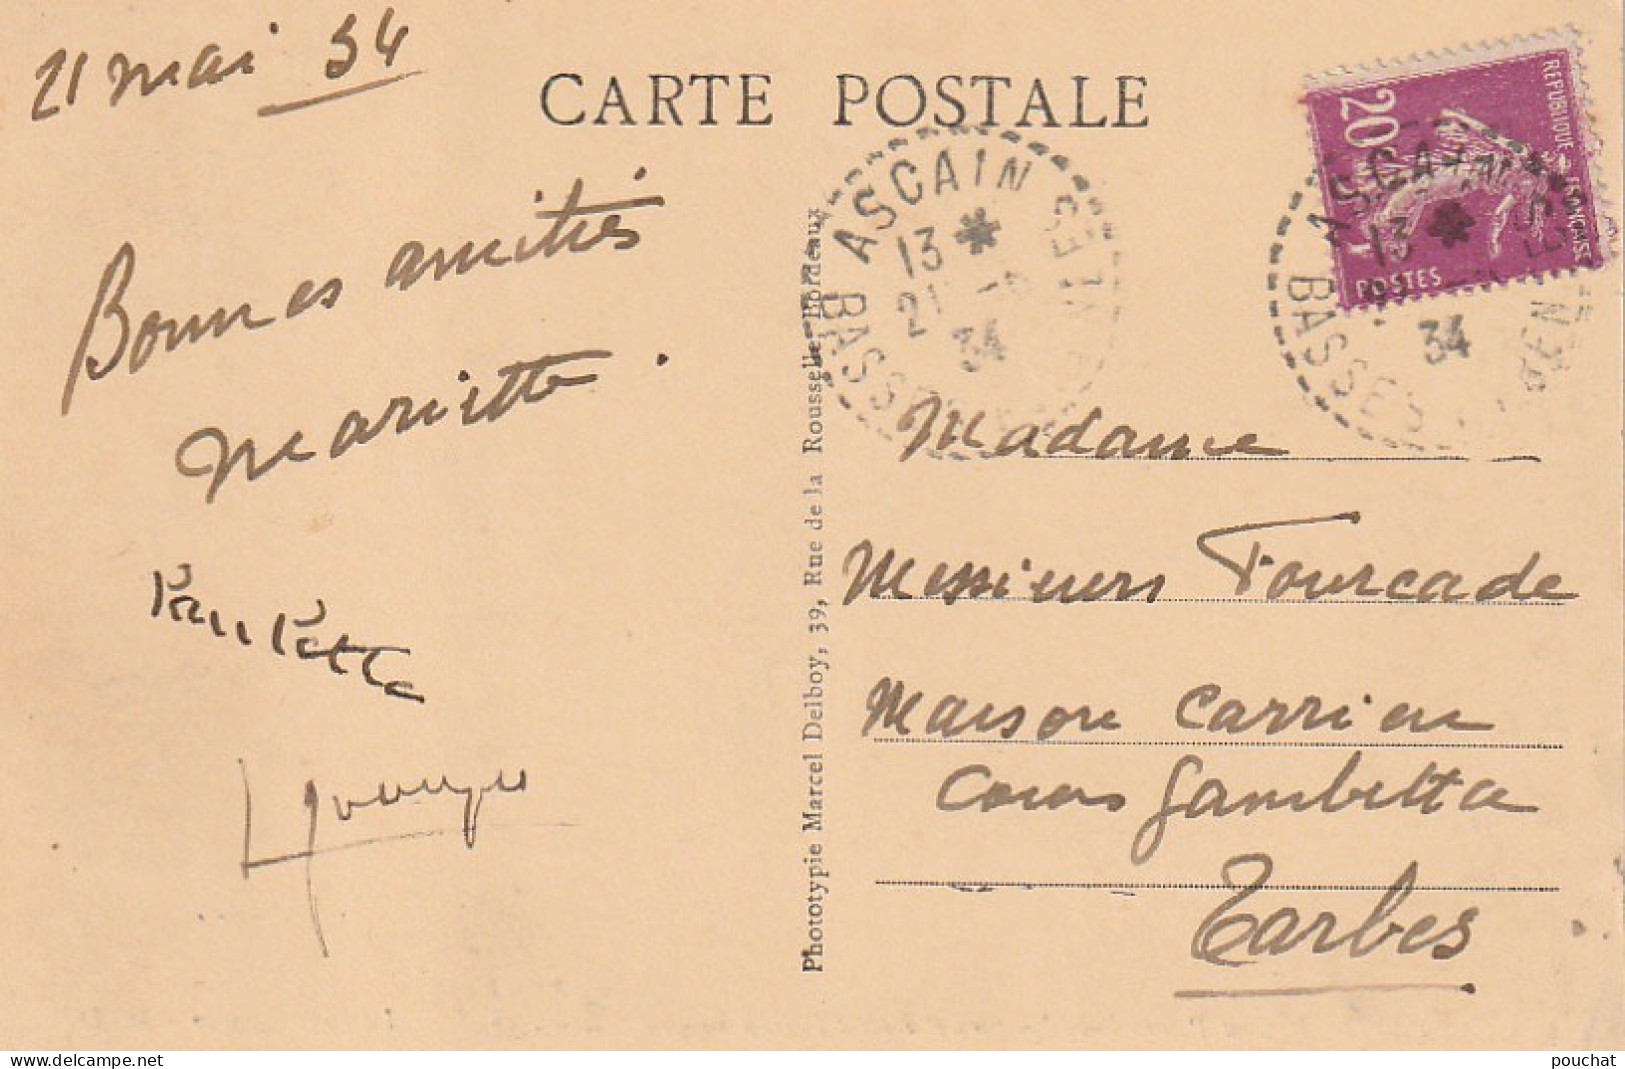 21 mai 34
CARTE POSTALE
Bonnes amitiés
Mariette.
Phototypie Marcel Delboy, 39, Rue de la Rousselle-Bordeaux
ASCAIN
13 *
21
34
BASSES PYRENEES
REPUBLIQUE FRANÇAISE
20c
POSTES
ASCAIN
13 *
34
BASSES PYRENEES
Madame
Messieurs Fourcade
Maison Carrieu
Cours Gambetta
Tarbes
delcampe.net
pouchat